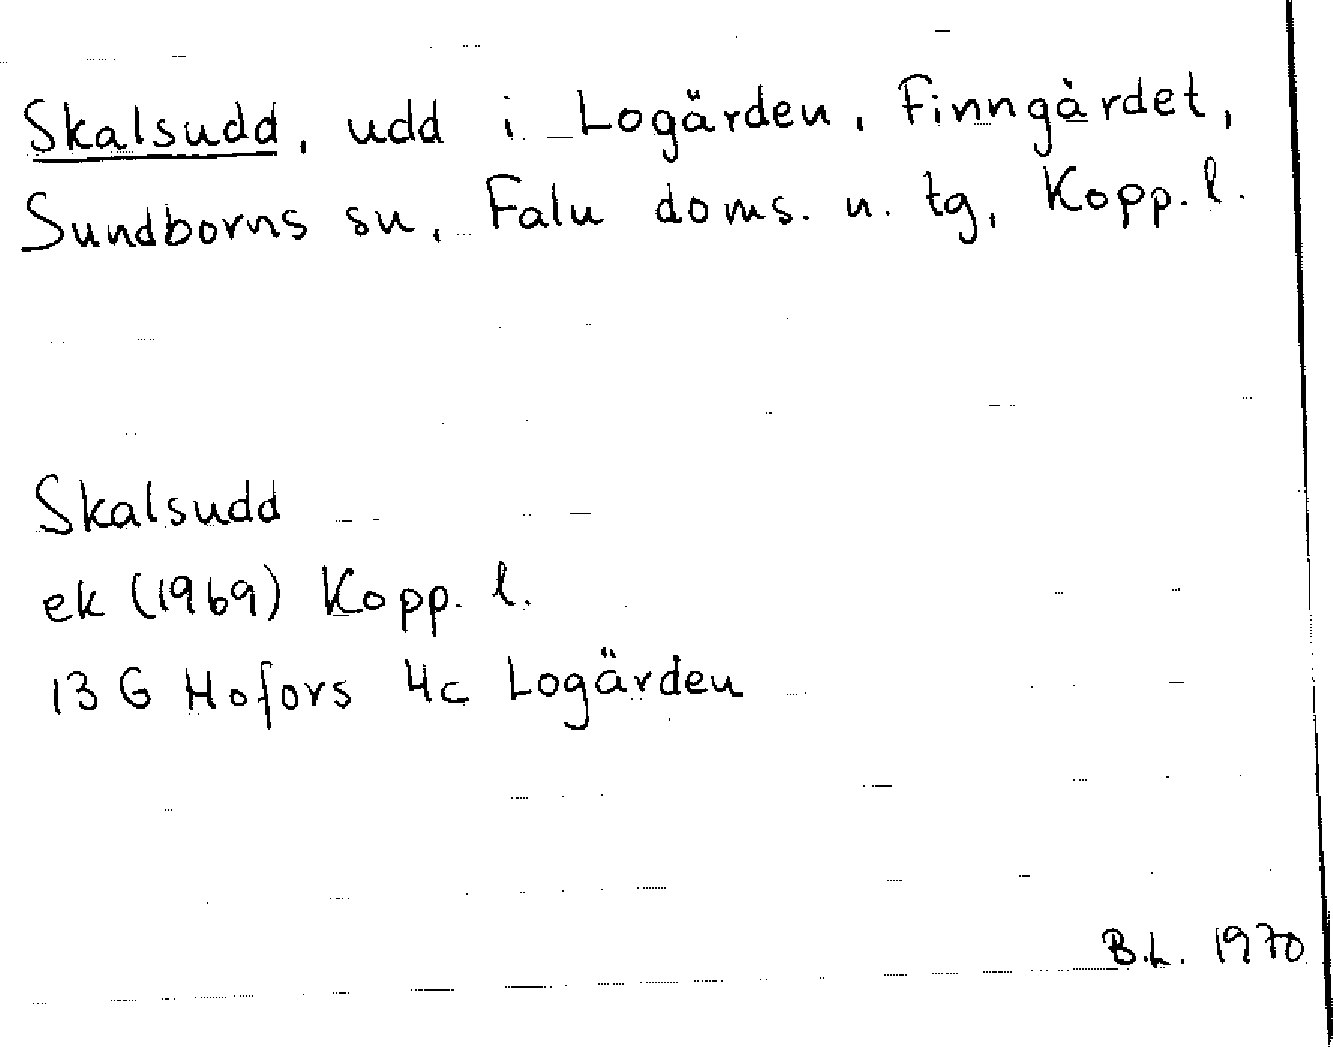 Skalsudd, udd i Logärden, Finngärdet,
Sundborns sn, Falu doms. n. tg, Kopp. l.
Skalsudd
ek (1969) Kopp. l.
13 G Hofors 4c Logärden
B.L. 1970